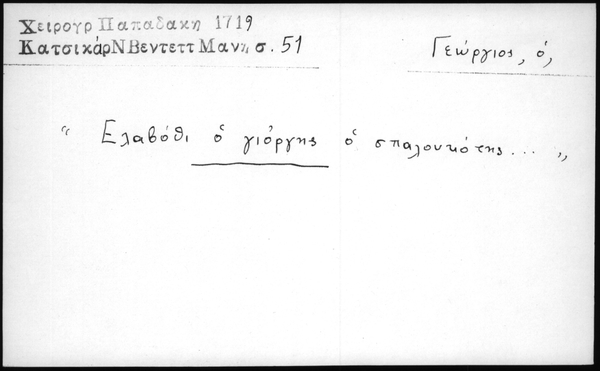 Χειρογρ Παπαδακη 1719
ΚατσικάρΝΒεντεττ Μανη σ. 51
Γεώργιος, ὁ,
" Ελαβόθι ὁ γιόργης ὁ σπαλουκιότης... "